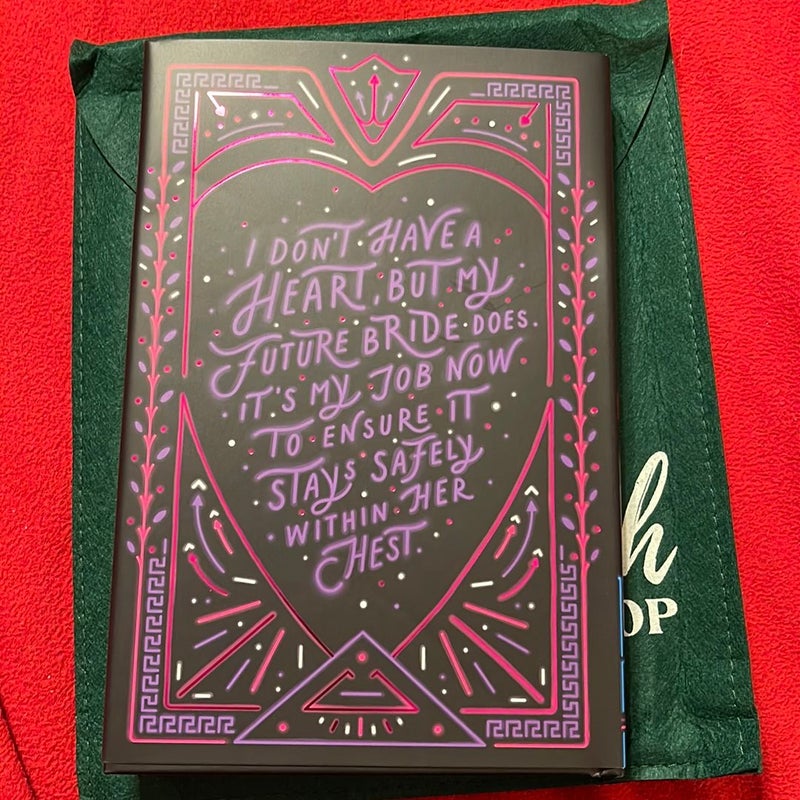 I DON'T HAVE A
HEART, BUT MY
FUTURE BRIDE DOES.
IT'S MY JOB NOW
TO ENSURE IT
STAYS SAFELY
WITHIN HER
CHEST.
h
OP